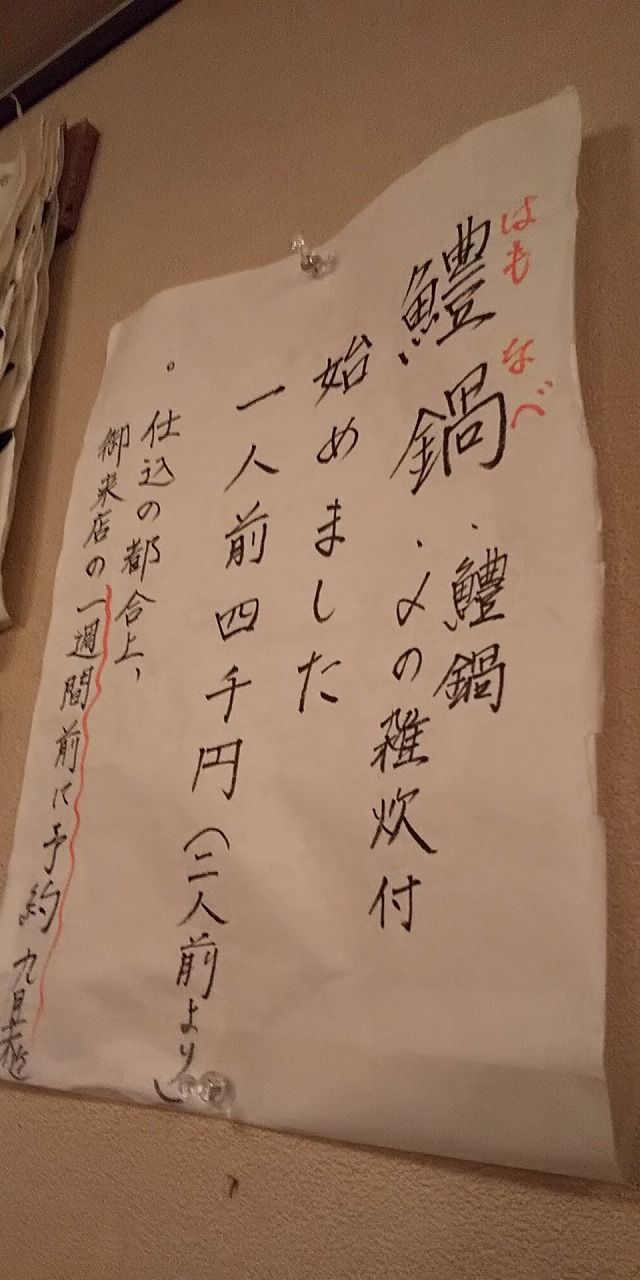 はも なべ
鱧鍋
・鱧鍋
・〆の雑炊付
始めました
一人前四千円(二人前より)
。仕込の都合上、
御来店の一週間前に予約